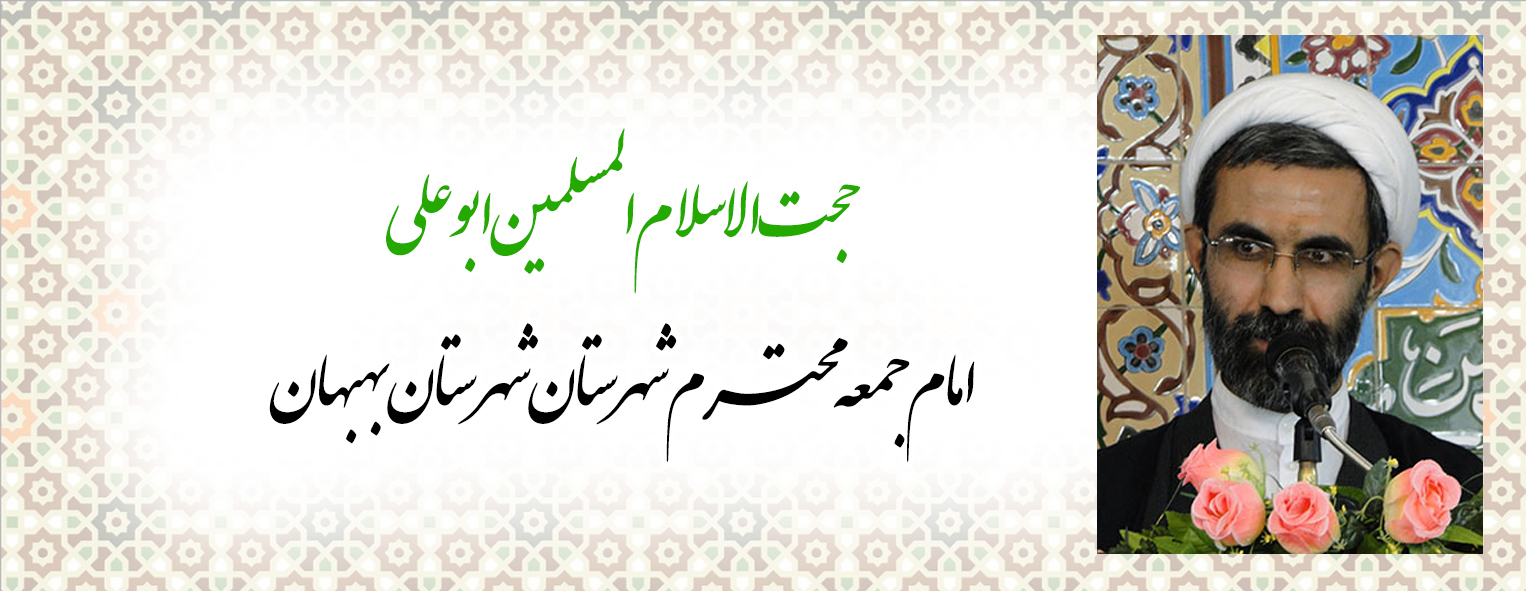 حجت الاسلام المسلمین ابوعلی
امام جمعه محترم شهرستان شهرستان بهبهان